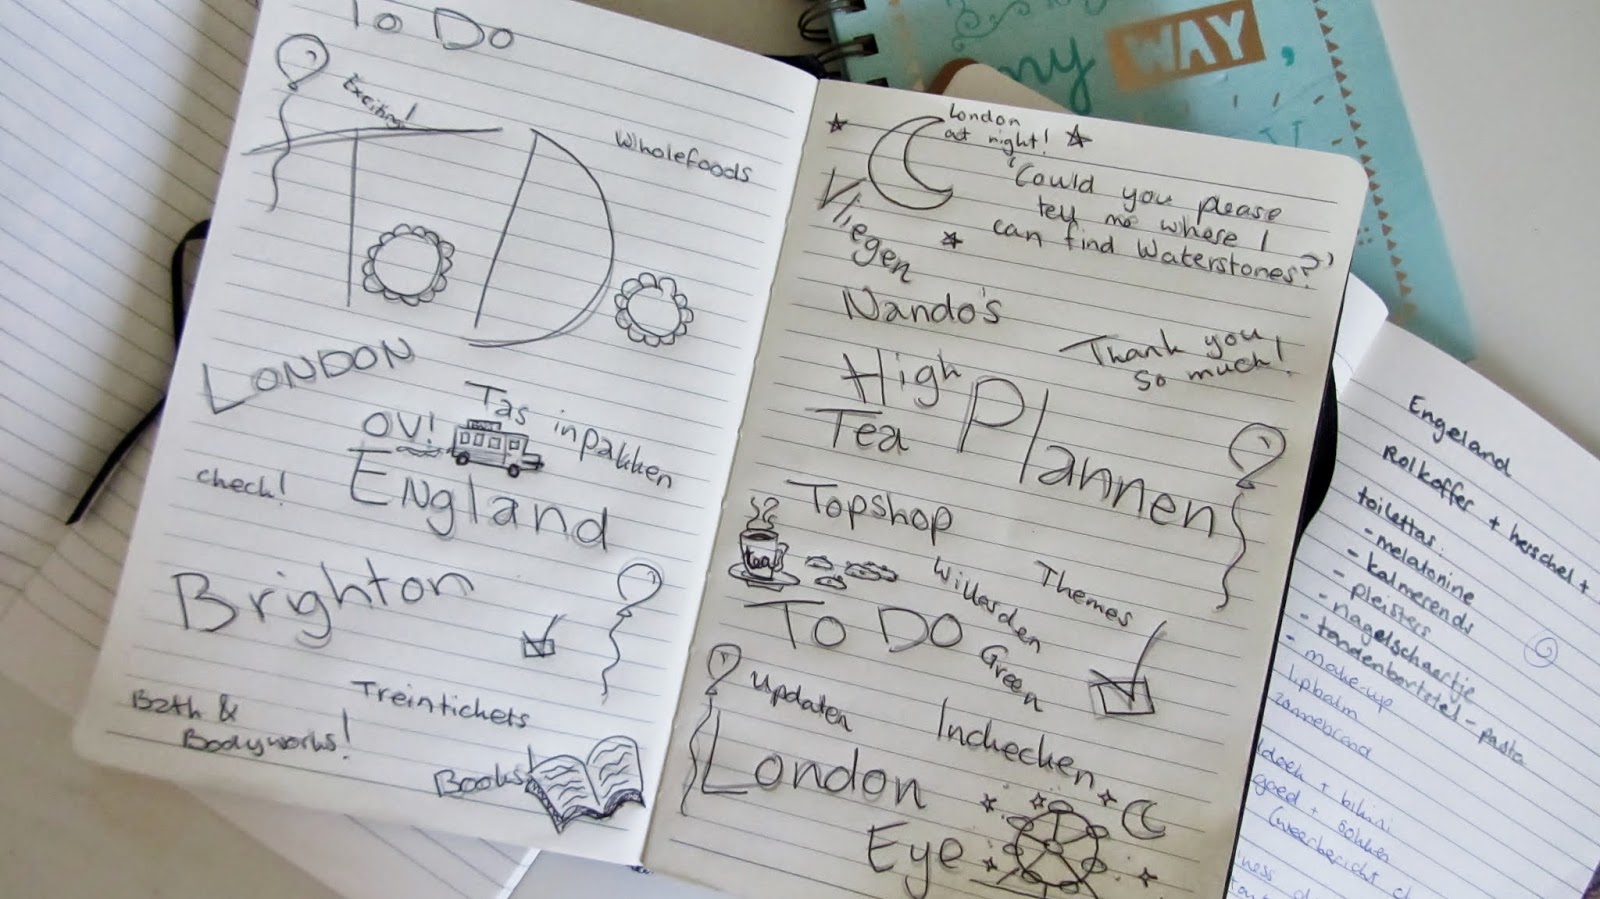 To Do
Exciting!
To Do
Wholefoods
LONDON
Tas inpakken
OV!
England
check!
Brighton
Treintickets
Bath &
Bodyworks!
Books
London
at night!
'Could you please
tell me where I
can find Waterstones?'
Vliegen
Nando's
Thank you
so much!
High
Tea
Plannen
Topshop
tea
Themes
Willesden
Green
To Do
updaten
Inchecken
London
Eye
my WAY,
Engeland
Rolkoffer + herschel +
toilettas.
- melatonine
- kalmerends
- pleisters
- nagelschaartje
- tandenborstel - pasta
- make-up
lipbalm
zonnebrand
+ bikini
goed + sokken